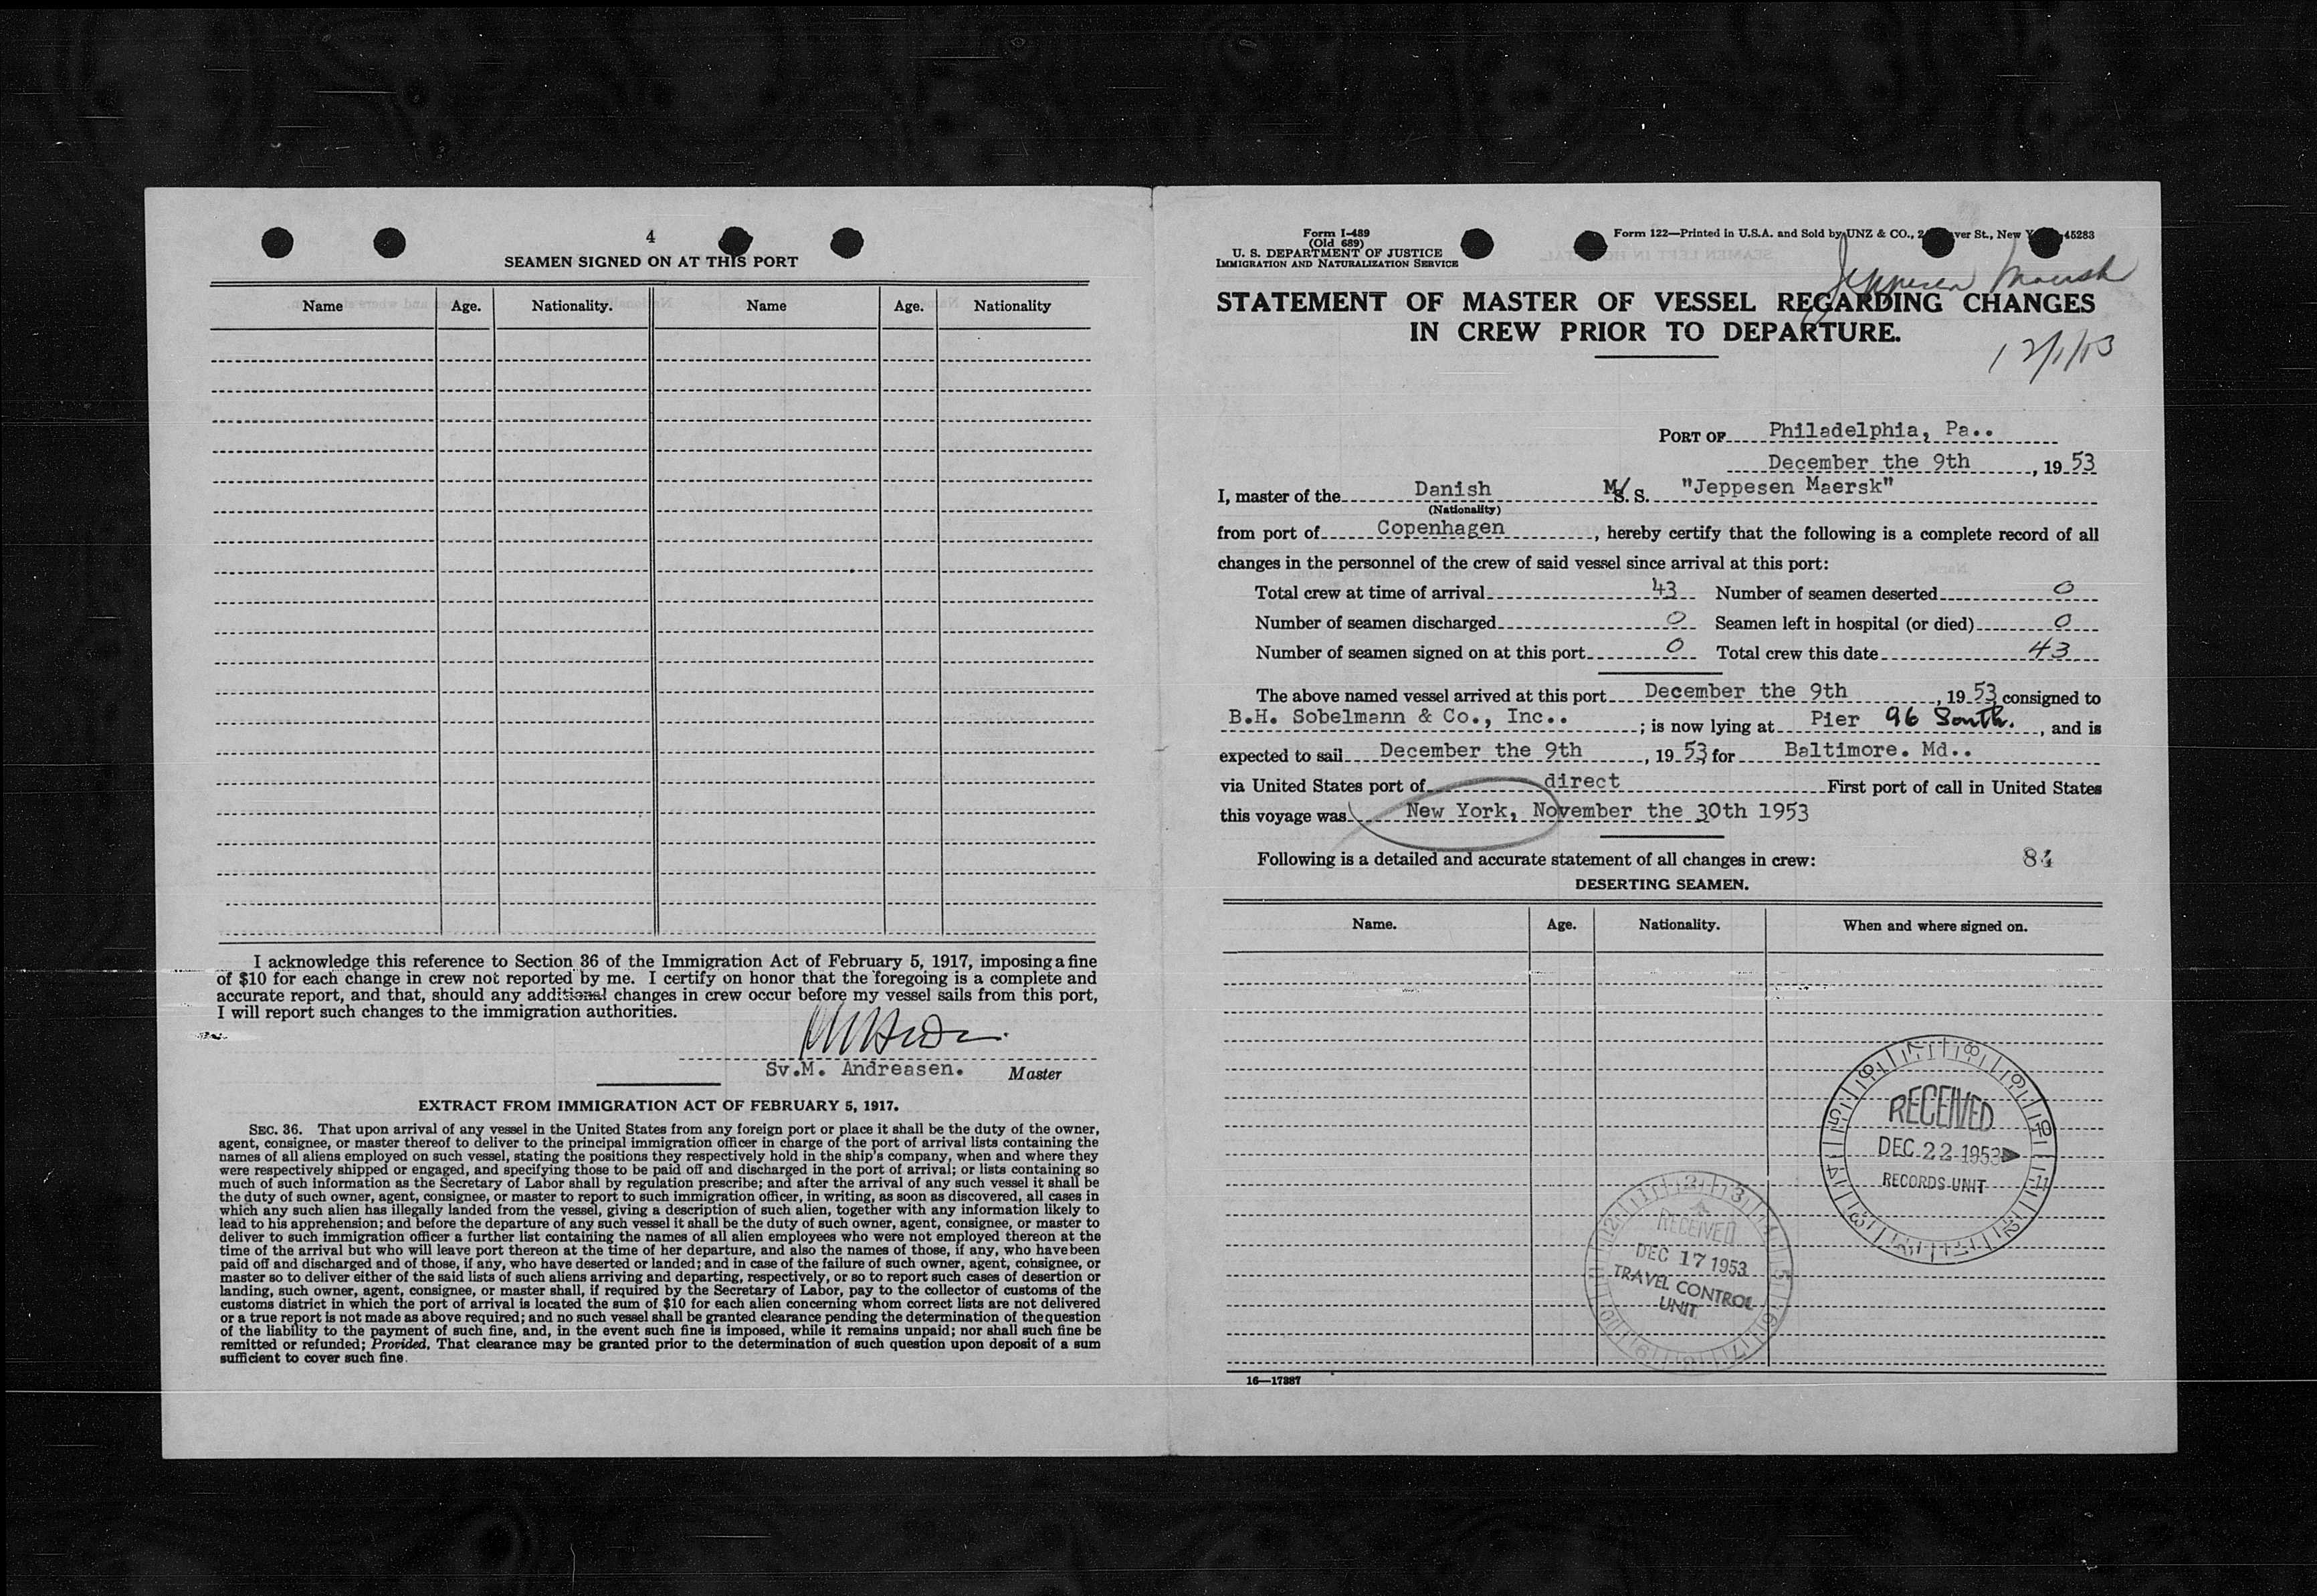 4
SEAMEN SIGNED ON AT THIS PORT
Name Age. Nationality. Name Age. Nationality
I acknowledge this reference to Section 36 of the Immigration Act of February 5, 1917, imposing a fine
of $10 for each change in crew not reported by me. I certify on honor that the foregoing is a complete and
accurate report, and that, should any additional changes in crew occur before my vessel sails from this port,
I will report such changes to the immigration authorities.
Sv.M. Andreasen. Master
EXTRACT FROM IMMIGRATION ACT OF FEBRUARY 5, 1917.
SEC. 36. That upon arrival of any vessel in the United States from any foreign port or place it shall be the duty of the owner,
agent, consignee, or master thereof to deliver to the principal immigration officer in charge of the port of arrival lists containing the
names of all aliens employed on such vessel, stating the positions they respectively hold in the ship's company, when and where they
were respectively shipped or engaged, and specifying those to be paid off and discharged in the port of arrival; or lists containing so
much of such information as the Secretary of Labor shall by regulation prescribe; and after the arrival of any such vessel it shall be
the duty of such owner, agent, consignee, or master to report to such immigration officer, in writing, as soon as discovered, all cases in
which any such alien has illegally landed from the vessel, giving a description of such alien, together with any information likely to
lead to his apprehension; and before the departure of any such vessel it shall be the duty of such owner, agent, consignee, or master to
deliver to such immigration officer a further list containing the names of all alien employees who were not employed thereon at the
time of the arrival but who will leave port thereon at the time of her departure, and also the names of those, if any, who have been
paid off and discharged and of those, if any, who have deserted or landed; and in case of the failure of such owner, agent, consignee, or
master so to deliver either of the said lists of such aliens arriving and departing, respectively, or so to report such cases of desertion or
landing, such owner, agent, consignee, or master shall, if required by the Secretary of Labor, pay to the collector of customs of the
customs district in which the port of arrival is located the sum of $10 for each alien concerning whom correct lists are not delivered
or a true report is not made as above required; and no such vessel shall be granted clearance pending the determination of the question
of the liability to the payment of such fine, and, in the event such fine is imposed, while it remains unpaid; nor shall such fine be
remitted or refunded; Provided, That clearance may be granted prior to the determination of such question upon deposit of a sum
sufficient to cover such fine.
Form I-489
(Old 689)
U. S. DEPARTMENT OF JUSTICE
IMMIGRATION AND NATURALIZATION SERVICE
Form 122—Printed in U.S.A. and Sold by UNZ & CO., St., New 45283
Jeppesen Maersk
STATEMENT OF MASTER OF VESSEL REGARDING CHANGES
IN CREW PRIOR TO DEPARTURE.
PORT OF Philadelphia, Pa..
December the 9th, 1953
I, master of the Danish M/S. S. "Jeppesen Maersk"
(Nationality)
from port of Copenhagen, hereby certify that the following is a complete record of all
changes in the personnel of the crew of said vessel since arrival at this port:
Total crew at time of arrival 43 Number of seamen deserted 0
Number of seamen discharged 0 Seamen left in hospital (or died) 0
Number of seamen signed on at this port 0 Total crew this date 43
The above named vessel arrived at this port December the 9th, 1953 consigned to
B.H. Sobelmann & Co., Inc.. ; is now lying at Pier 96 South., and is
expected to sail December the 9th, 1953, for Baltimore. Md..
via United States port of direct First port of call in United States
this voyage was New York, November the 30th 1953
Following is a detailed and accurate statement of all changes in crew: 84
DESERTING SEAMEN.
Name. Age. Nationality. When and where signed on.
RECEIVED
DEC 22 1953
RECORDS UNIT
RECEIVED
DEC 17 1953
TRAVEL CONTROL
UNIT
16—17887